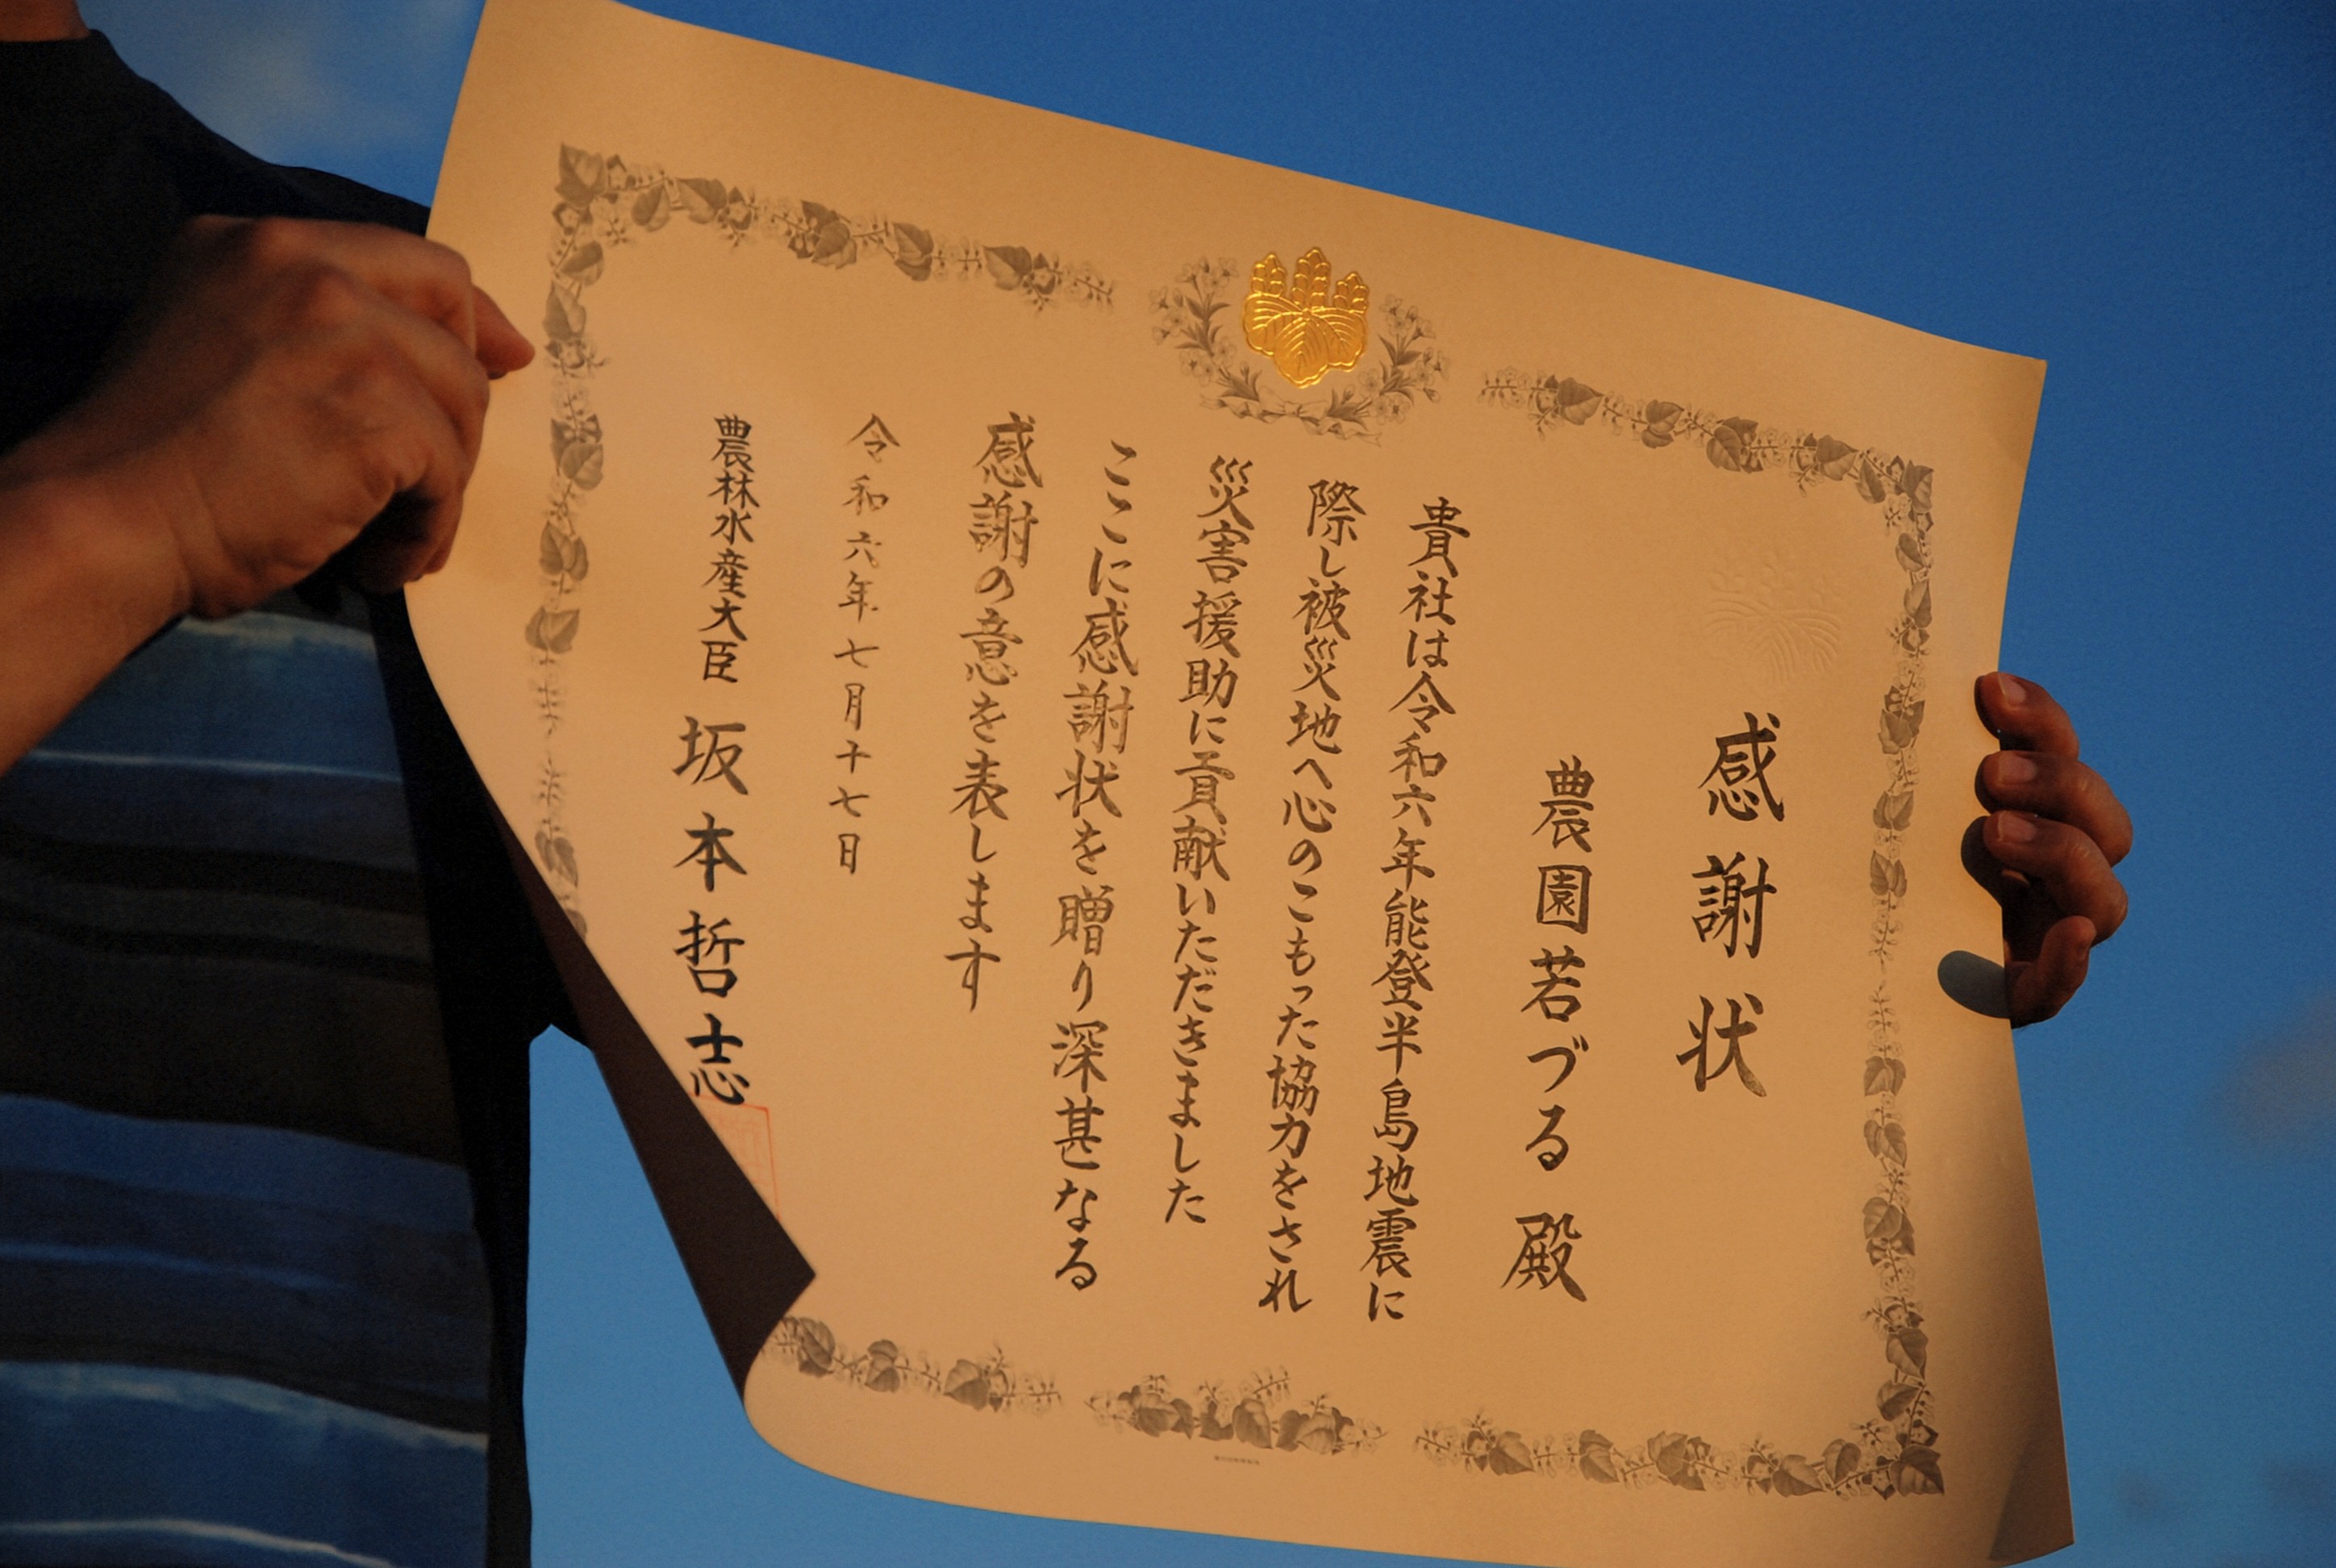 感謝状
農園若づる 殿
貴社は令和六年能登半島地震に
際し被災地へ心のこもった協力をされ
災害援助に貢献いただきました
ここに感謝状を贈り深甚なる
感謝の意を表します
令和六年七月十七日
農林水産大臣 坂本哲志